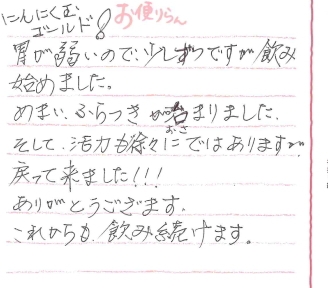 にんにく玉
ゴールド!
お便りらん
胃が弱いので、少しずつですが飲み
始めました。
めまい、ふらつきが治まりました。
おさ
そして、活力も徐々にではありますが
戻って来ました!!!
ありがとうございます。
これからも、飲み続けます。